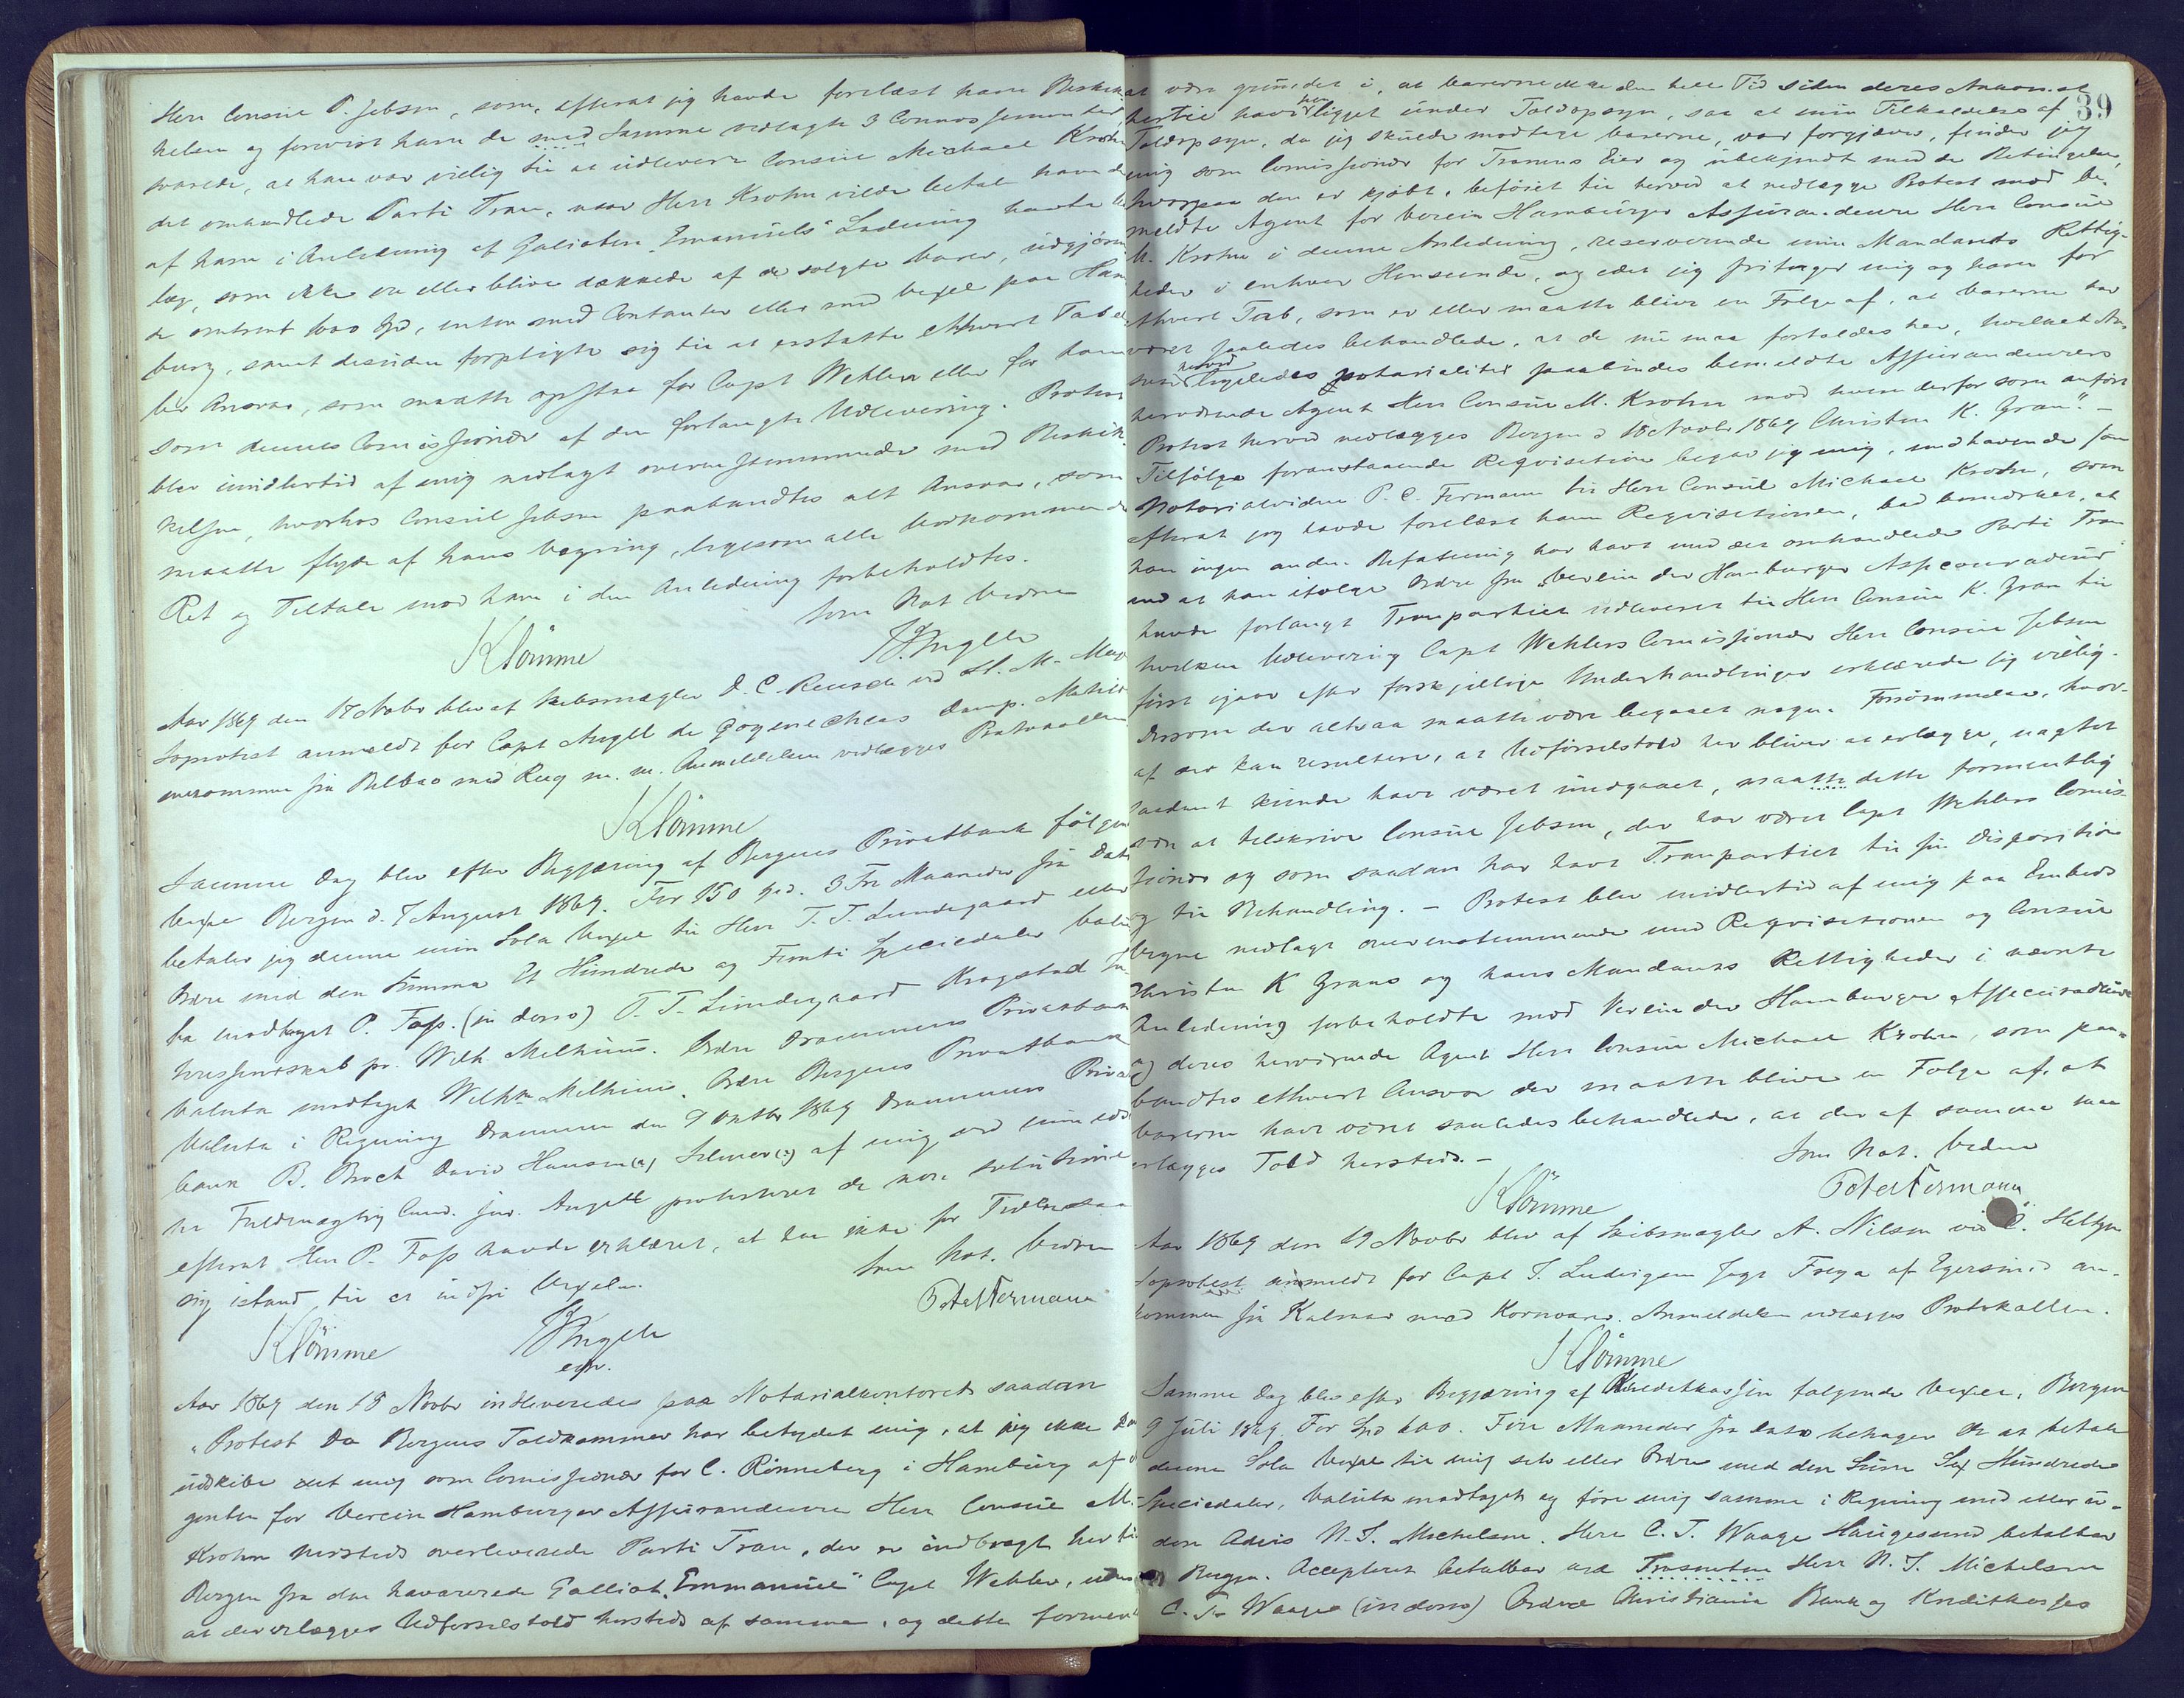 Herr Consul P. Jebsen, som, efterat jeg havde forelæst ham Beskik
kelsen og forevist ham de med Samme vedlagte 3 Connossementer
svarede, at han var villig til at udlevere Consul Michael Krohn
det omhandlede Parti Tran, naar Herr Krohn vilde betale ham de
af ham i Anledning af Galioten "Emanuels" Ladning havte Ud
læg, som ikke er eller blive dækkede af de solgte Varer, udgjøren
de omtrent 600 Spd, enten med Contanter eller med Vexel paa Ham
burg, samt desuden forpligte sig til at erstatte ethvert Tab el
ler Ansvar, som maatte opstaa for Capt Wehlen eller for ham
som dennes Comissionær af den forlangte Udlevering. Protest
blev imidlertid af mig nedlagt overensstemmende med Beskik
kelsen, hvorhos Consul Jebsen paabandtes alt Ansvar, som
maatte flyde af hans Vægring, ligesom alle vedkommende
Ret og Tiltale mod ham i den Anledning forbeholdtes.
Som Not Vidner
Klömme
J Angell
Aar 1869 den 17 Novbr blev af Skibsmægler D. C. Reusch ved H. M. Mey
Søprotest anmeldt for Capt Angell de Gogenecheas Damp. Mathild
ankommen fra Bilbao med Rug m. m. Anmeldelsen vedlægges Protocollen
Klömme
Samme Dag blev efter Begjæring af Bergens Privatbank følgen
Vexel Bergen d. 7 August 1869. For 150 Spd. 3 Tre Maaneder fra Dato
betaler jeg denne min Sola Vexel til Herr T. T. Lundegaard eller
Ordre med den Summa Et Hundrede og Femti Speciedaler Valu
ta modtaget P. Foss. (in dorso) T. T. Lundegaard Kragstad In
teressentskab pr. Wilh. Milhuus. Ordre Drammens Privatbank
Valuta modtaget Wilh. Milhuus. Ordre Bergens Privatbank
Valuta i Regning Drammen den 9 Octbr 1869 Drammens Privat
bank B. Broch David Hansen(?) blev(?) af mig ved min edsvo
ne Fuldmægtig Cand. jur. Angell protesteret de non solutione
efterat Herr P. Foss havde erklæret, at han ikke for Tiden saa
sig istand til at indfri Vexelen.
Som Not. Vidner
Peter Fermann
Klömme
J Angell
exp.
Aar 1869 den 18 Novbr indleveredes paa Notarialkontoret saadan
"Protest Da Bergens Toldkammer har betydet mig, at jeg ikke kan
udskibe det mig som Comissionær for C. Rönneberg i Hamburg af A
genten for Verein Hamburger Assurandeure Herr Consul M.
Krohn hersteds overleverede Parti Tran, der er indbragt hertil
Bergen fra den havarerede Galliot "Emmanuel" Capt Wehler, uden
at der erlægges Udførselstold hersteds af samme, og dette formenes
39
at være grundet i, at Varerne ikke den hele Tid siden deres Ankomst
hertil have her ligget under Toldopsyn, saa at min Tilkaldelse af
Toldopsyn, da jeg skulde modtage Varerne, var forgjæves, finder jeg
mig som Comissionær for Tranens Eier og ubekjendt med de Betingelser,
hvorpaa den er kjøbt, beføiet til herved at nedlægge Protest mod be-
meldte Agent for Verein Hamburger Assurandeure Herr Consul
M. Krohn i denne Anledning, reserverende min Mandants Rettig-
heder i enhver Henseende, og idet jeg fritager mig og ham for
ethvert Tab, som er eller maatte blive en Følge af, at Varerne har
været saaledes behandlede, at de nu maa fortoldes her, hvilket An-
svar herved ligeledes notarialiter paabindes bemeldte Assurandeurers
herværende Agent Herr Consul M. Krohn mod hvem derfor som anført
Protest herved nedlægges Bergen d 18 Novbr 1869 Christen K. Gran". —
Tilfölge foranstaaende Requisition begav jeg mig, medhavende som
Notarialvidne P. C. Fermann til Herr Consul Michael Krohn, som
efterat jeg havde forelæst ham Requisitionen, bad bemærket, at
han ingen anden Befatning har havt med det omhandlede Parti Tran
end at han ifølge Ordre fra "Verein der Hamburger Assecuradeure"
havde forlangt Tranpartiet udleveret til Herr Consul K. Gran til
hvilken Udlevering Capt Wehlers Comissionær Herr Consul Jebsen
først igaar efter forskjellige Underhandlinger erklærede sig villig.
Dersom der altsaa maatte være begaaet nogen Forsømmelse, hvor-
af det kan resultere, at Udførselstold her bliver at erlægge, uagtet
saadant kunde have været undgaaet, maatte dette formentlig
være at tilskrive Consul Jebsen, der har været Capt Wehlers Comis-
sionær og som saadan har havt Tranpartiet til sin Disposition
og til Behandling. — Protest blev imidlertid af mig paa Embeds
Vegne nedlagt overensstemmende med Requisitionen og Consul
Christen K Grans og hans Mandants Rettigheder i nævnte
Anledning forbeholdte mod Verein der Hamburger Assecuradeure
og deres herværende Agent Herr Consul Michael Krohn, som paa-
bandtes ethvert Ansvar der maatte blive en Følge af, at
Varerne have været saaledes behandlede, at der af samme maa
erlægges Told hersteds. —
Som Not. Vidne
Peter Fermann
Klömme
Aar 1869 den 19 Novbr blev af Skibsmægler A. Nilsen ved C. Heltzen
Søprotest anmeldt for Capt T. Ludvigsen Jagt Freya af Egersund an-
kommen fra Kalmar med Kornvarer. Anmeldelsen vedlægges Protokollen.
Klömme
Samme Dag blev efter Begjæring af Kreditkassen følgende Vexel, Bergen
9 Juli 1869. For Spd 600. Fire Maaneder fra dato behager De at betale
denne Sola Vexel til mig selv eller Ordre med den Sum Sex Hundrede
Speciedaler, Valuta modtaget og føre mig samme i Regning med eller u-
den Advis N. J. Michelsen. Herr C. T. Waage Haugesund betalbar
i Bergen. Accepteret betalbar ved Trasenten Herr N. J. Michelsen
C. T. Waage (in dorso) Ordre Christiania Bank og Kreditkasses